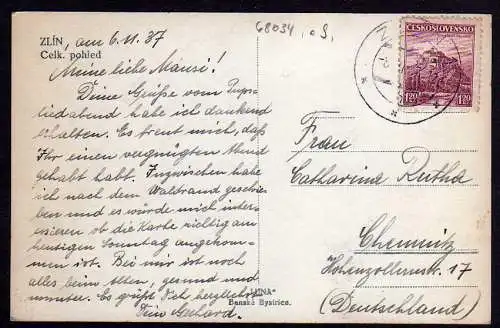 ZLÍN, am 6. 11. 37
Celk. pohled
68034
ČESKOSLOVENSKO
1.20 1.20
Meine liebe Mausi!
Deine Grüße vom
liedabend habe ich dankend
erhalten. Es freut mich, daß
Ihr einen vergnügten Abend
gehabt habt. Inzwischen habe
ich nach dem Waldrand geschrie-
ben und es würde mich inter-
essieren ob die Karte richtig am
heutigen Sonntag angekom-
men ist. Bei mir ist noch
alles beim alten, gesund und
munter. Es grüßt Dich herzlichst
Dein Gerhard.
"LUNA"
Banská Bystrica.
Frau
Catharina
Chemnitz
Hohenzollernstr. 17
(Deutschland)